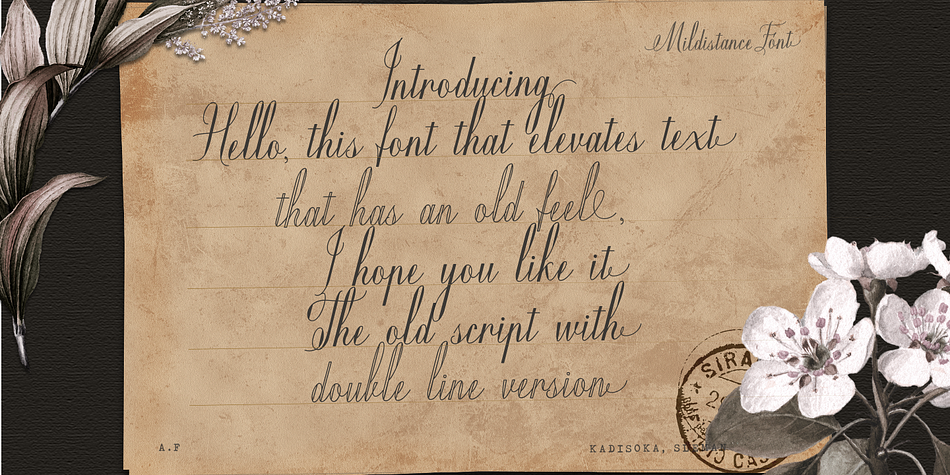 Mildistance Font
Introducing
Hello, this font that elevates text
that has an old feel,
I hope you like it
The old script with
double line version
A.F
KADISOKA,